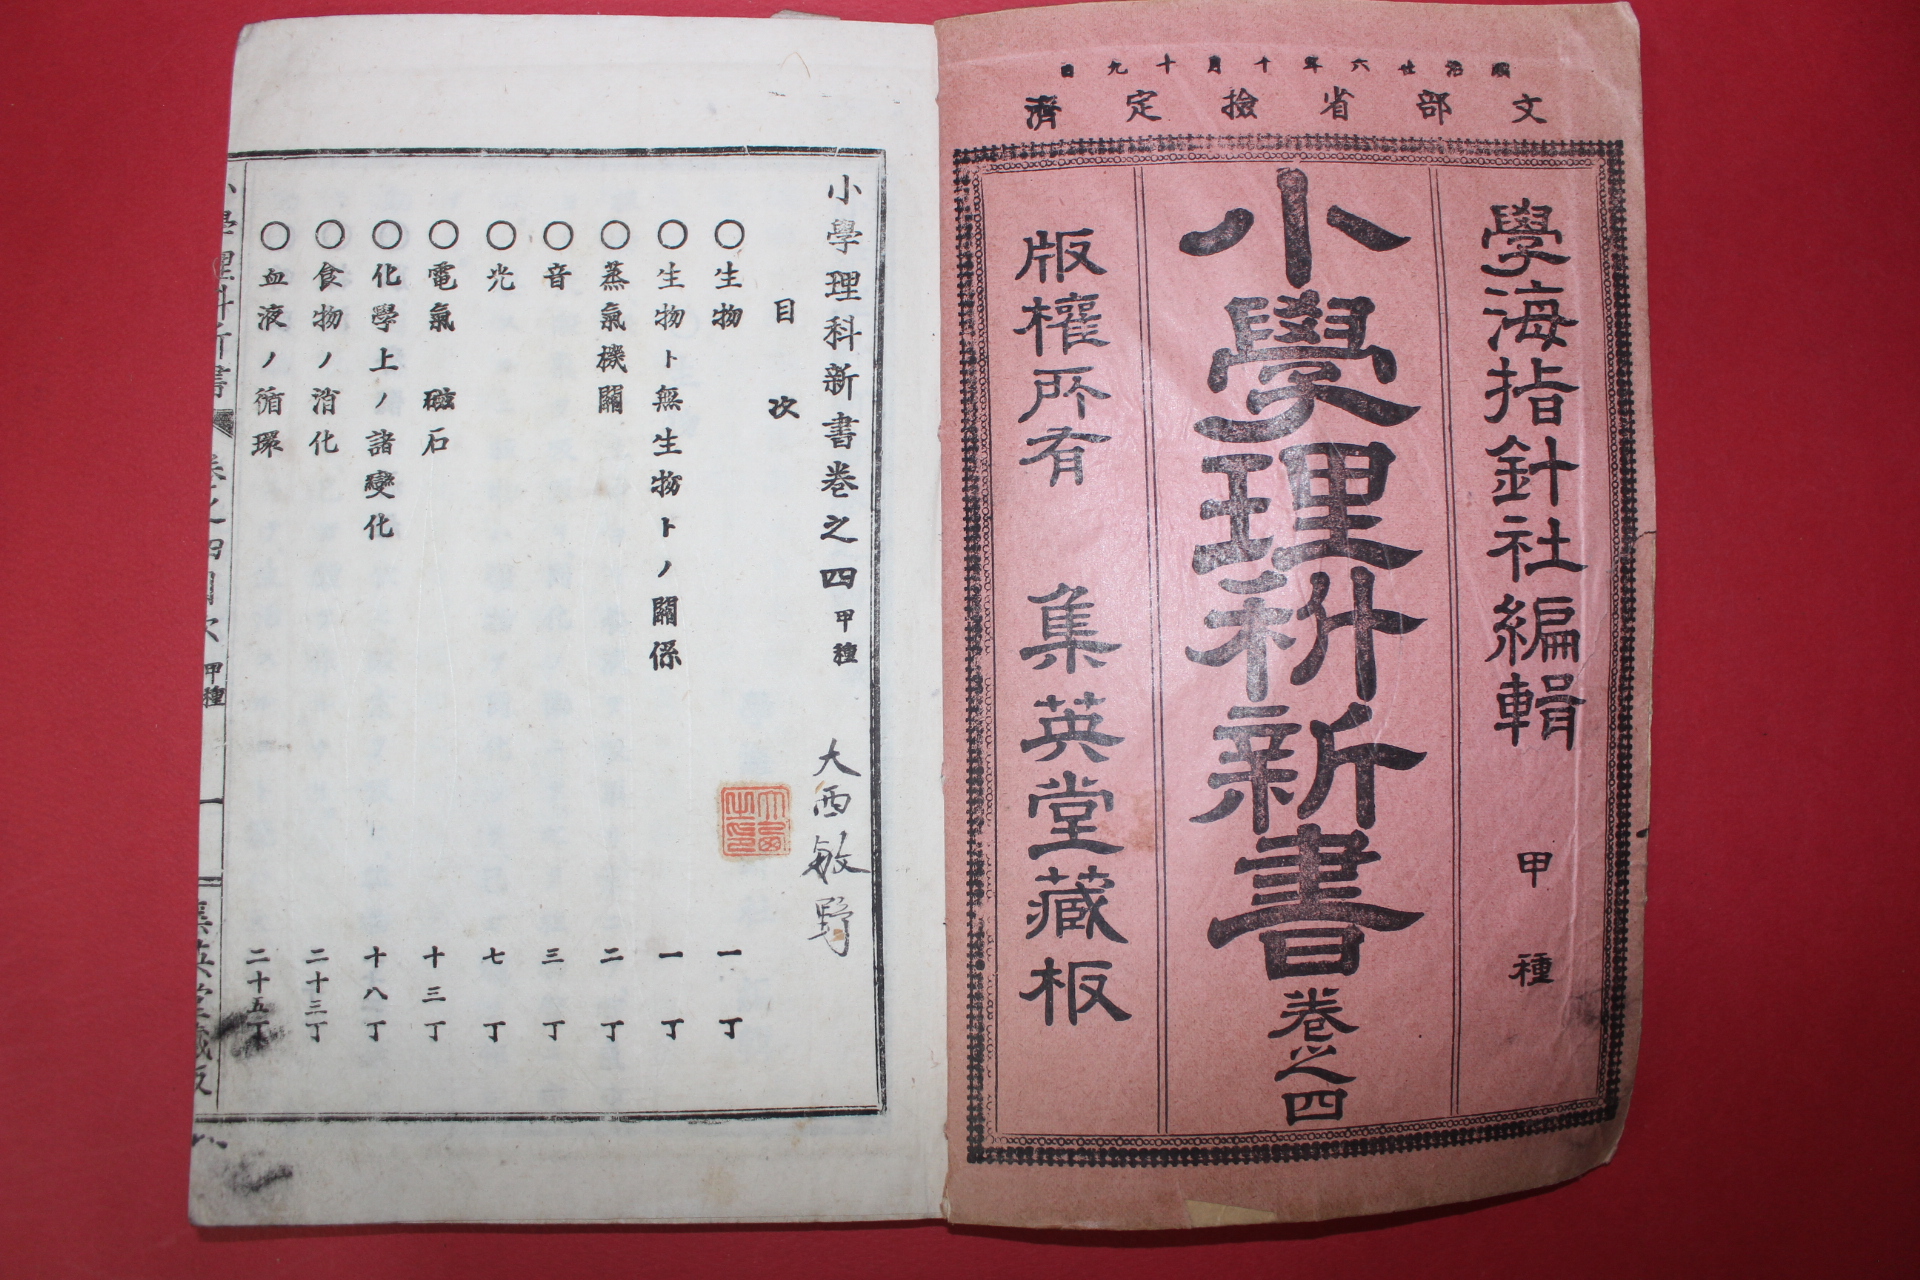 明治廿六年十月十九日
文部省檢定濟
學海指針社編輯 甲種
小學理科新書卷之四
版權所有 集英堂藏板
小學理科新書卷之四 甲種
大西敏野
目次
○生物 一丁
○生物ト無生物トノ關係 一丁
○蒸氣機關 二丁
○音 三丁
○光 七丁
○電氣 磁石 十三丁
○化學上ノ諸變化 十八丁
○食物ノ消化 二十三丁
○血液ノ循環 二十五丁
小學理科新書 卷之四目次 甲種 一 集英堂藏版